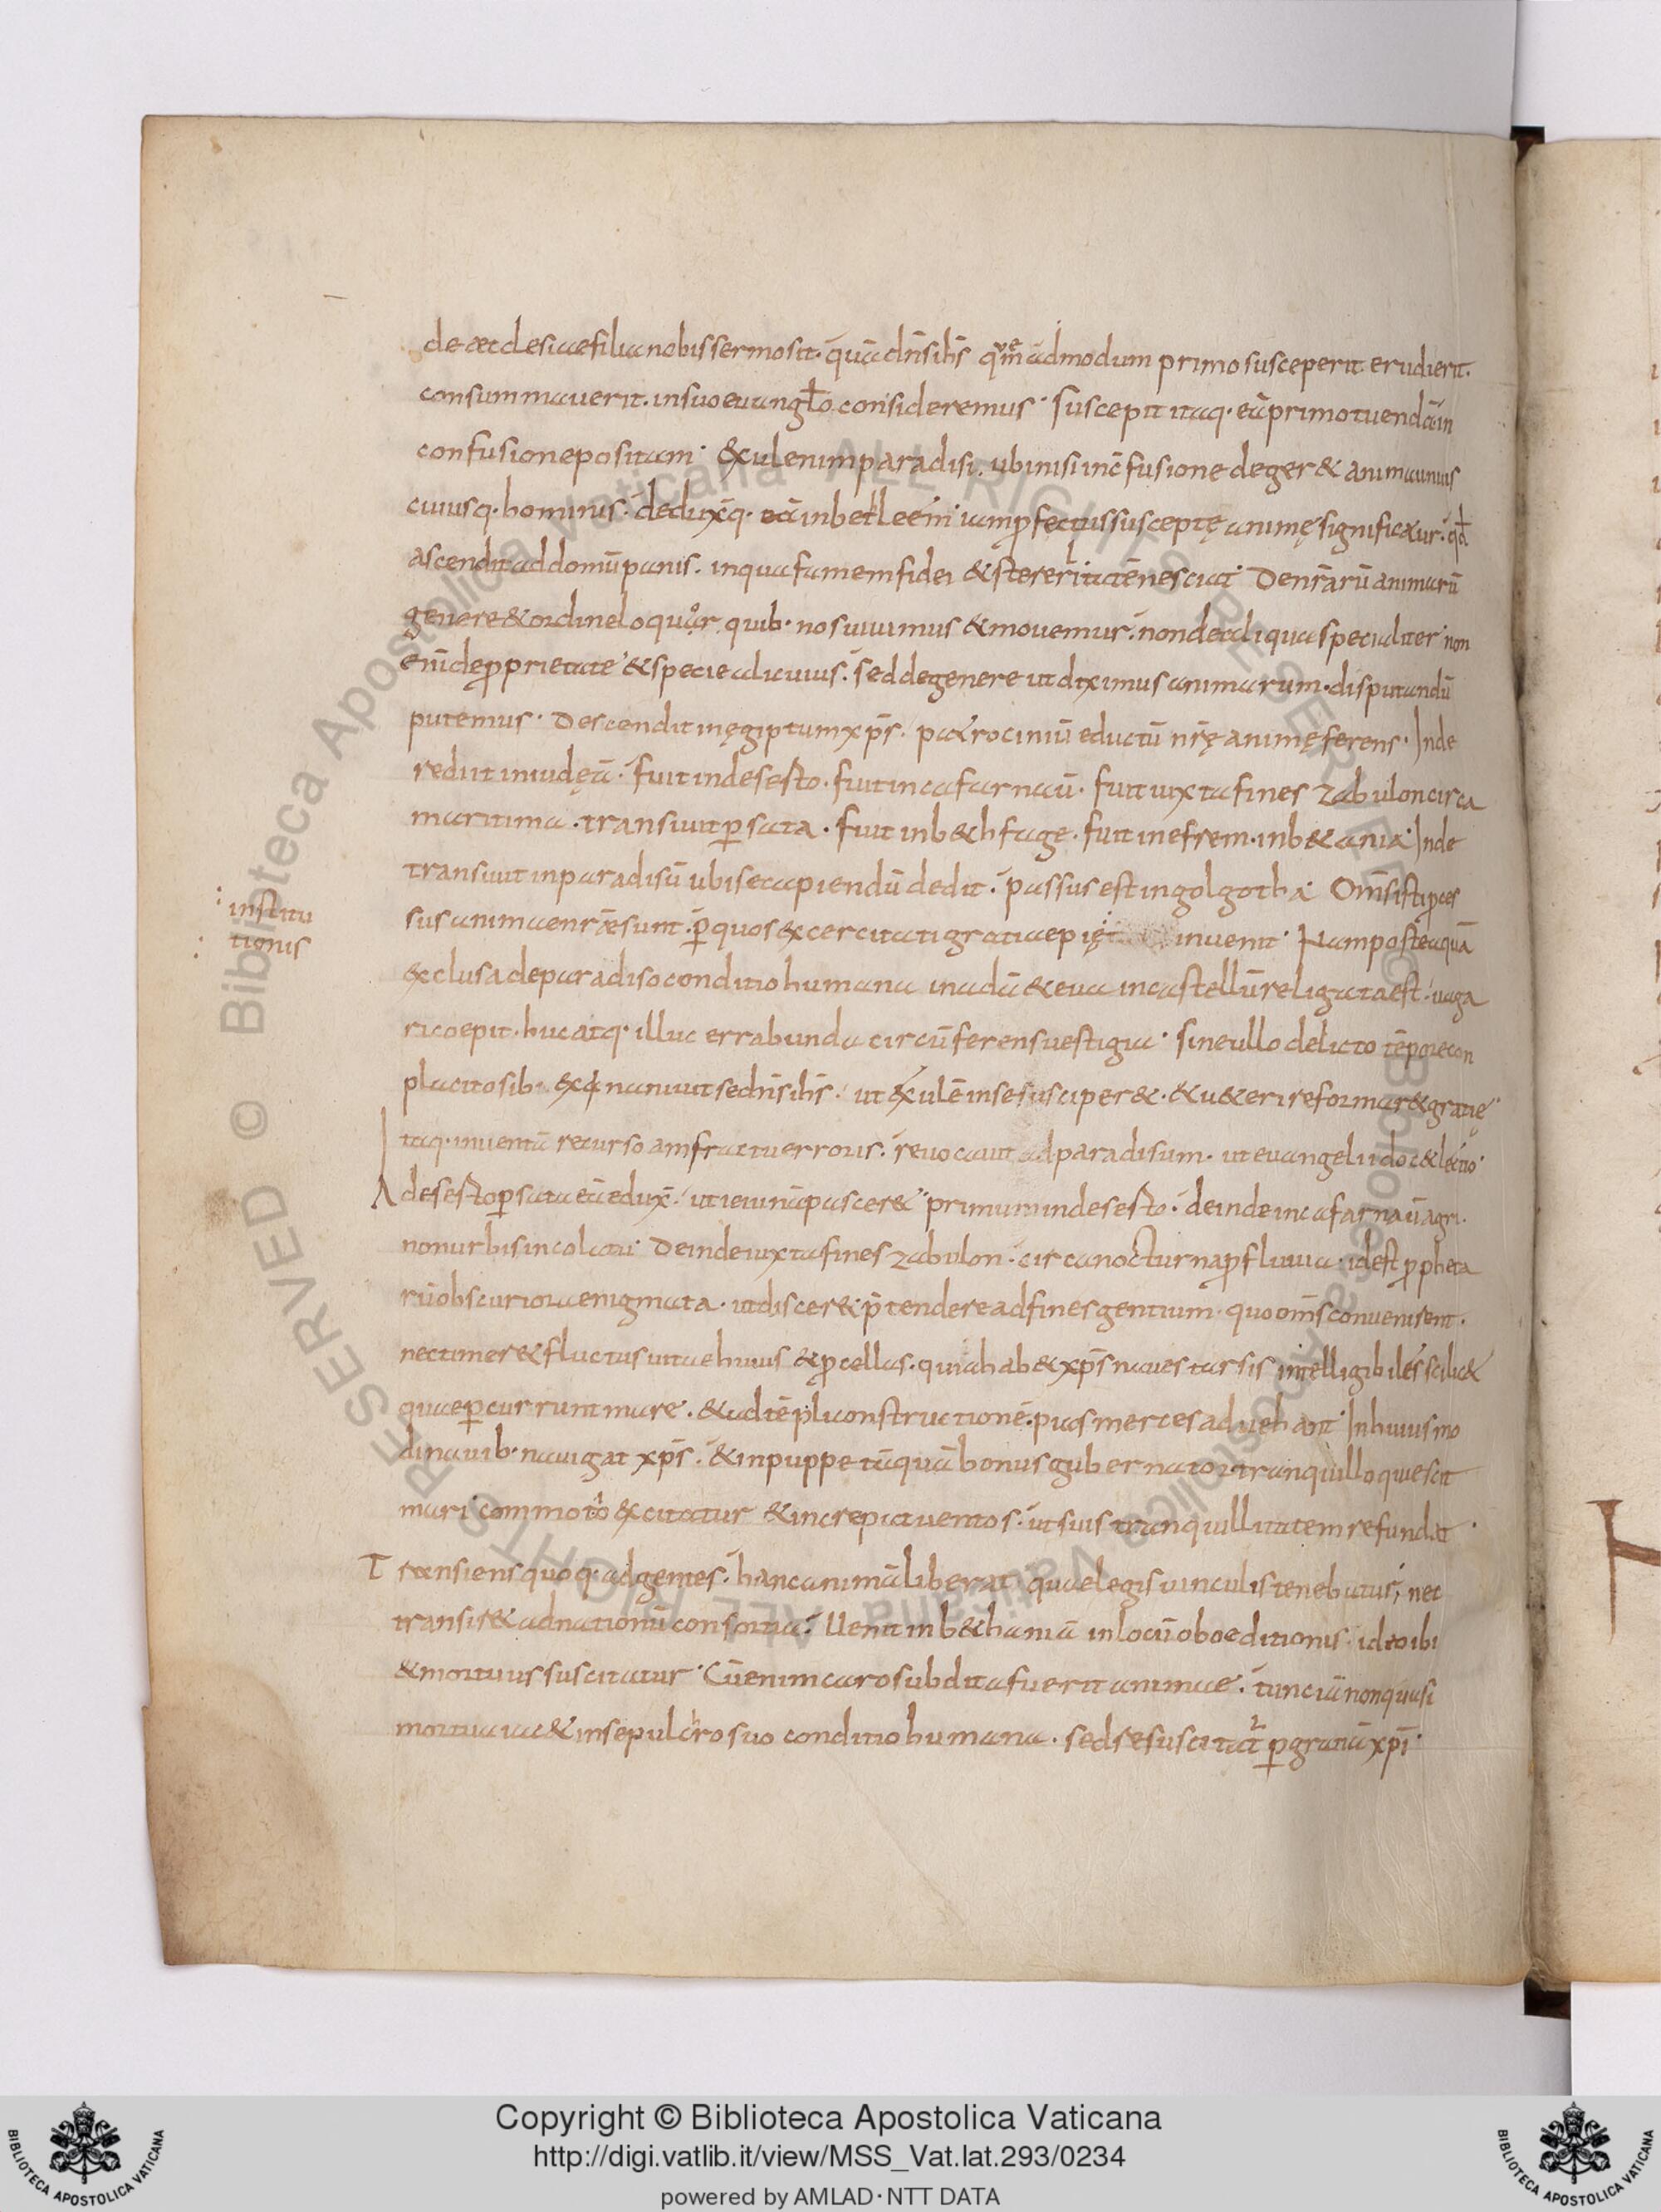 de aecclesiae filia nobis sermo sit. quā dn̄s ih̄s quēadmodum primo susceperit erudierit.
consummauerit. in suo euangł̄o consideremus. suscepit itaq. eā primo tuendā in
confusione positam. exul enim paradisi. ubi nisi in c̄fusione deger& anima unius
cuiusq. hominis. deduxitq. eā in bethleem. iam ꝓfectus susceptę animę significatur. qđ
ascendit ad domū panis. in qua famem fidei & sterelitatē nesciat. De nr̄arū animarū
genere & ordine loquor quib. nos uiuimus & mouemur. non de aliqua specialiter. non
enī de ꝓprietate & specie alicuius. sed de genere ut diximus animarum. disputandū
putemus. Descendit in ęgiptum xp̄s. patrociniū eductū nr̄ę animę ferens. Inde
rediit in iudęā. fuit in desesto. fuit in cafarnaū. fuit iuxta fines zabulon circa
maritima. transiuit ꝑ sata. fuit in b&hfage. fuit in efrem. in b&ania. Inde
transiuit in paradisū ubi se capiendū dedit. passus est in golgotha. Om̄s isti ꝓces
institu
tionis
sus animae nr̄ae sunt. ꝑ quos excercitati gratiae inuenit. Nam posteaquā
exclusa de paradiso conditio humana in adā & eua in castellū religata est. uaga
ri coepit. huc atq. illuc errabunda circū ferens uestigia. sine ullo delicto tēpore con
placito sib. exinaniuit se dn̄s ih̄s. ut exulē in se susciper&. & u&eri reformar& gratię
Itaq. inuentā recurso amfractu erroris. reuocauit ad paradisum. ut euangelii doc& lectio.
A desesto ꝑ sata eā eduxit. ut ieiunā pascer& primum in desesto. deinde in cafarnaū agri.
non urbis incolam. Deinde iuxta fines zabulon. circa nocturna ꝓfluuia. id est ꝓpheta
rū obscuriora enigmata. ut discer& p̄tendere ad fines gentium. quo om̄s conuenirent.
nec timer& fluctus uitae huius & ꝓcellas. quia hab& xp̄s naues tarsis intelligibiles scilic&
quae ꝑcurrunt mare. & ad tēpli constructionē. pias merces aduehant. In huiusmo
di nauib. nauigat xp̄s. & in puppe tāquā bonus gubernator. tranquillo quiescit
mari commoto excitatur & increpat uentos. ut suis tranquillitatem refundat.
Transiens quoq. ad gentes. hanc animā liberat quae legis uinculis tenebatur; nec
transir& ad nationū consortia. Uenit in b&haniā in locū oboeditionis. ideo ibi
& mortuus suscitatur. Cū enim caro subdita fuerit animae. tunc iā non quasi
mortua iac& in sepulchro suo conditio humana. sed se suscitat ꝑ gratiā xp̄i.
Copyright © Biblioteca Apostolica Vaticana
http://digi.vatlib.it/view/MSS_Vat.lat.293/0234
powered by AMLAD·NTT DATA
BIBLIOTECA APOSTOLICA VATICANA
BIBLIOTECA APOSTOLICA VATICANA